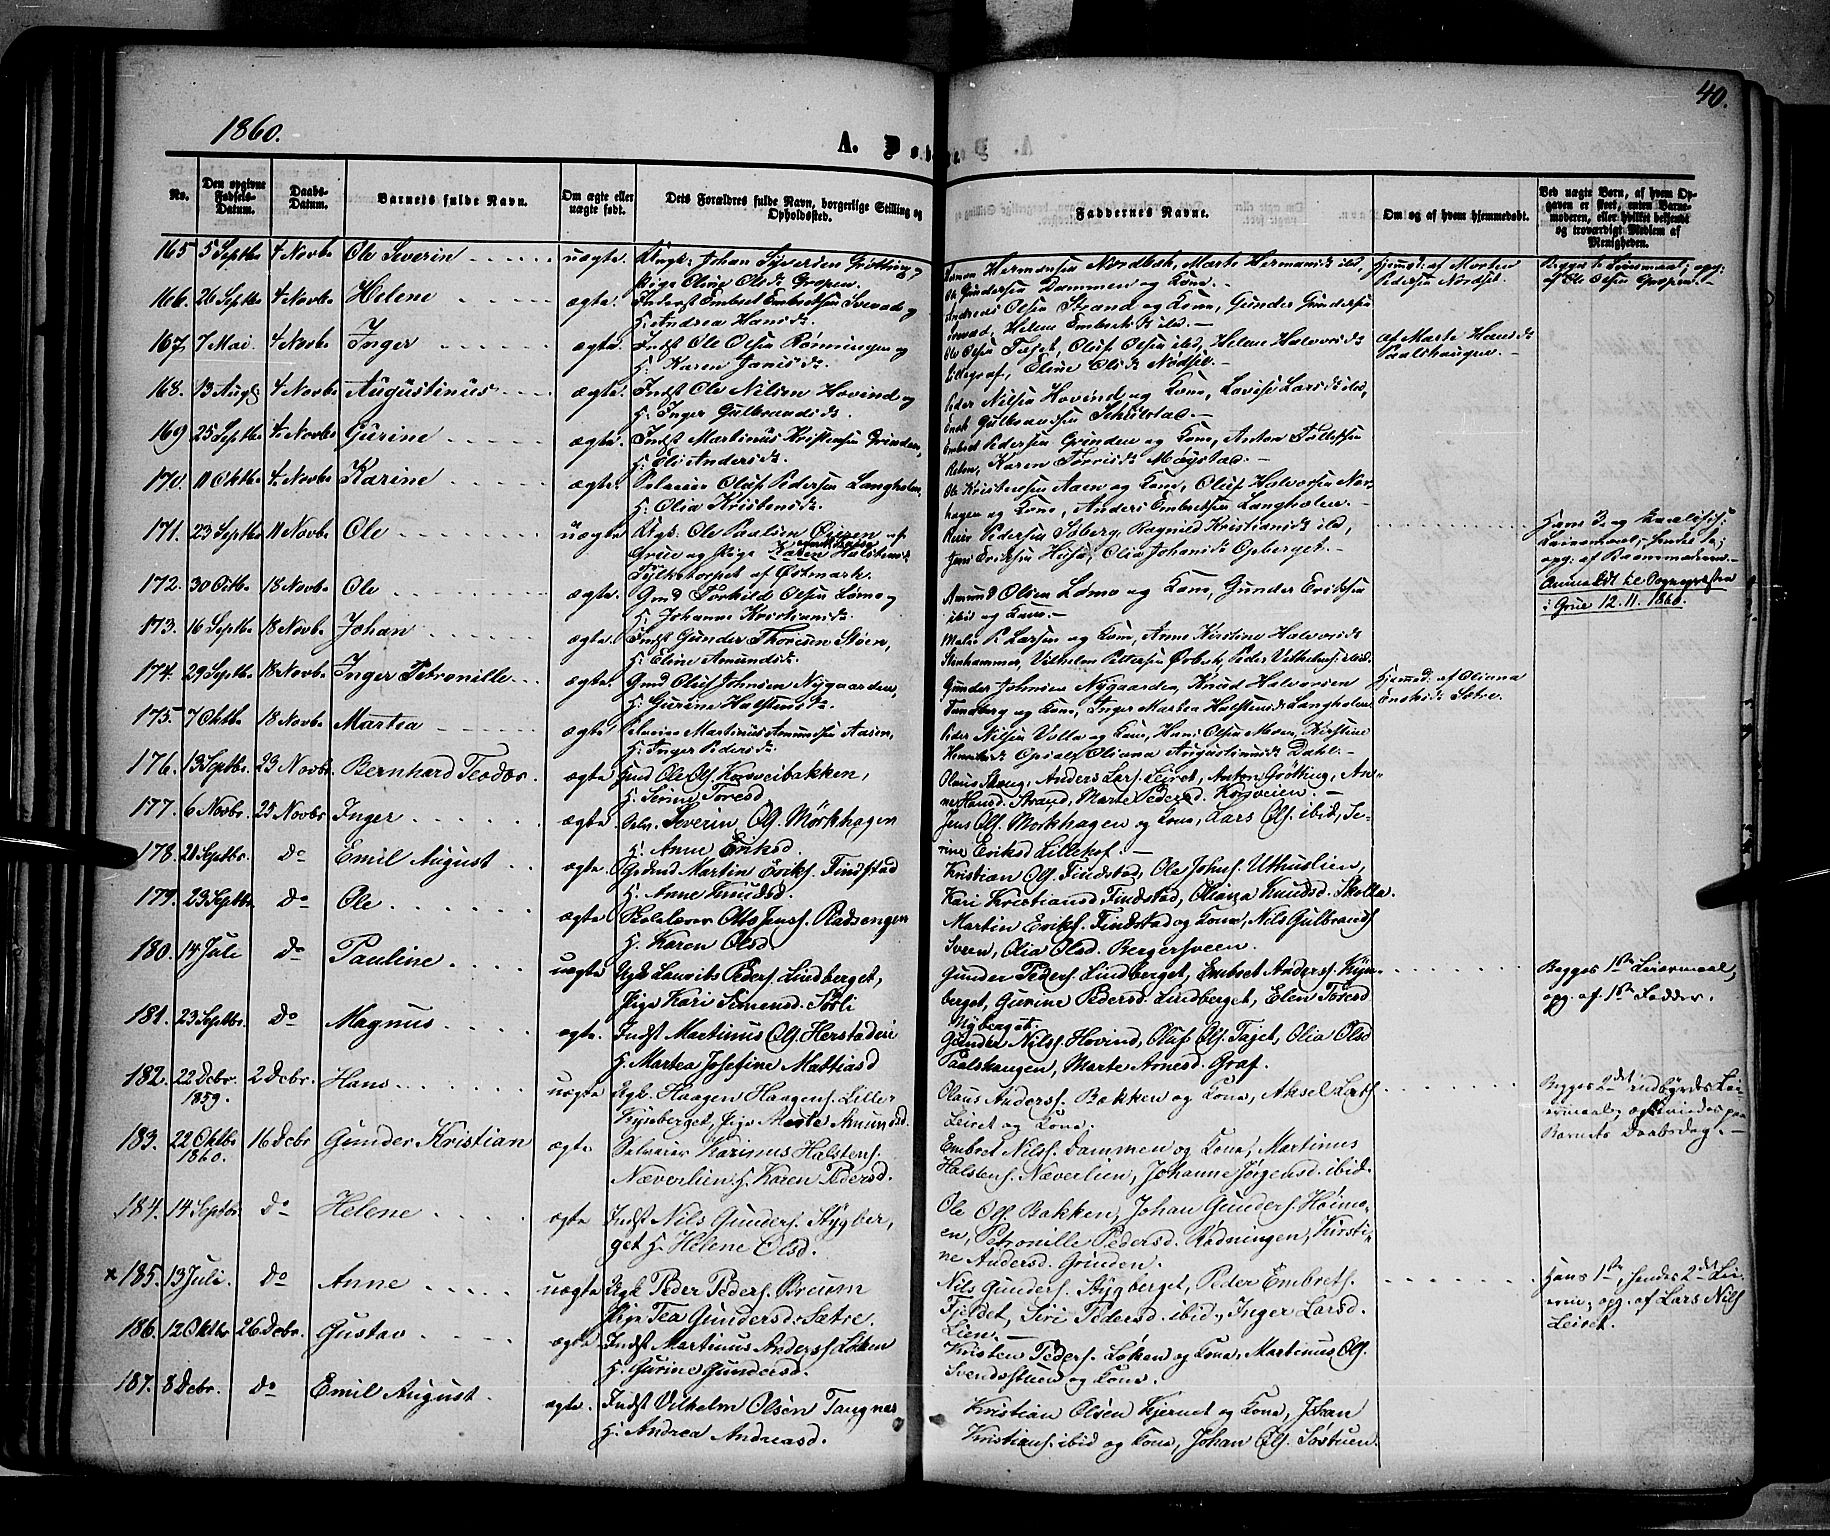 1860.
40.
A. D
No. Den opgivne Fødsels-Datum. Daabs-Datum. Barnets fulde Navn. Om ægte eller uægte født. Dets Forældres fulde Navn, borgerlige Stilling og Opholdssted. Faddernes Navne. Om og af hvem hjemmedøbt. Ved uægte Børn, af hvem Opgaven er skeet, enten Barnemoderen, eller hvilket bekjendt og troværdigt Medlem af Menigheden.
165 5 Septbr 4 Novbr Ole Severin uægte. Ungk: Johan Syversen Grøtting og
Pige Oline Olsdr Gropen.
Hermansen Nordbæk, Marte Hermansdr ibid,
Ole Gundersen Dammen og Kone.
Hjemd: af Morten Pedersen Nordset.
Begges 1e Leiermaal; opg: af Ole Olsen Gropen.
166. 26 Septbr 4 Novbr Helene ægte. Inderst Embret Embretsen Svenad og
H: Andrea Hansdr.
Andreas Olsen Strand og Kone, Gunder Gundersen
Svenad, Helene Embretsdr ibid.
167. 7 Mai. 4 Novbr Inger ægte. Indst Ole Olsen Rønningen og
H. Karen Jonisdr.
Ole Olsen Taget, Oluf Olsen ibid, Helene Halvorsdr
Lillegraf, Eline Olsdr Nordset.
af Marte Hansdr Paalshaugen.
168. 13 Augs 4 Novbr Augustinus ægte. Indst Ole Nilsen Hovind og
H. Inger Gulbrandsdr.
Peder Nilsen Hovind og Kone, Lovise Larsdr ibid,
Gulbrandsen Schulstad.
169 25 Septbr 4 Novbr Gurine ægte. Indst Martinus Kristensen Grinden,
H. Eli Andersdr.
Embret Pedersen Grinden og Kone, Anton Tollefsen
Karen Torrisdr Møystad.
170. 11 Oktbr 4 Novbr Karine ægte. Selveier Oluf Pedersen Langholen,
H: Olia Kristensdr.
Ole Kristensen Aaen og Kone, Oluf Halvorsen Nor-
hagen og Kone, Anders Embretsen Langholen.
171. 23 Septbr 11 Novbr Ole uægte. Ungk. Ole Paalsen Øieren af
Grue og Pige Karen Halstensdr
af Østmark.
Reier Pedersen Soberg, Ragnild Kristiansdr ibid,
Jens Eriksen Husa, Olia Johansdr Opberget.
Hans 3. og
Leiermaal, hendes 1e;
opg. af Barnemoderen.
Anmeldt til Sognepræsten
i Grue 12.11.1860.
172. 30 Oktbr 18 Novbr Ole ægte. Gmd Torkild Olsen Lømo og
H. Johanne Kristiansdr.
Amund Olsen Lømo og Kone, Gunder Eriksen
ibid og Kone.
173. 16 Septbr 18 Novbr Johan ægte. Indst Gunder Thoresen Støen,
H. Eline Amundsdr.
P. Larsen og Kone, Anne Kirstine Halvorsdr
Stenhammer, Vilhelm Pettersen Ørbek, Peder Vilhelmsen ibid.
174. 29 Septbr 18 Novbr Inger Petronille ægte. Gmd Oluf Johnsen Nygaarden,
H. Gurine Halstensdr.
Gunder Johnsen Nygaarden, Knud Halvorsen
Sundberg og Kone, Inger Martea Halstensdr Langholen.
Hjemd: af Oliana
Sætre.
175. 7 Oktbr 18 Novbr Martea ægte. Selveier Martinus Amundsen Aasen,
H. Inger Pedersdr.
Peder Nilsen Volla og Kone, Hans Olsen Moren, Kirstine
Opsal, Oliana Augustinusdr Dahl.
176. 13 Septbr. 23 Novbr. Bernhard Teodor. ægte Gmd Ole Ols. Korsveibakken,
H. Serine Toresd.
Olaus Skaug, Anders Lars. Leiret, Anton Grøtting, An-
ne Hansd. Strand, Marte Pedersd. Korsveien.
177. 6 Novbr. 25 Novbr Inger ægte Selv. Severin Ols. Mørkhagen
H. Anne Eriksd.
Jens Ols. Mørkhagen og Kone, Lars Ols. ibid, Se-
rine Eriksd Lillekof.
178. 21 Septbr. Do Emil August ægte Gmd Martin Eriks. Findstad
H. Anne Knudsd.
Kristian Ols. Findstad, Ole Johns. Uthuslien,
Kari Kristiansd Findstad, Oliana Knudsd. Skolla.
179. 23 Septbr Do Ole ægte Skolelærer Otto Jens. Rødsengen
H. Karen Olsd.
Martin Eriks. Findstad og Kone, Nils Gulbrands.
Sveen, Olia Olsd. Bergersveen.
180. 14 Juli Do Pauline uægte Ugk Laurits Peders. Lindberget,
Pige Kari Simensd. Sørli
Gunder Peders. Lindberget, Embret Anders. Kyn-
berget, Gurine Pedersd. Lindberget, Elen Toresd
Nyberget.
Begges 1ste Leiermaal,
opg. af 1ste Fadder.
181. 23 Septbr. Do Magnus ægte. Indst Martinus Ols. Herstadeie
H. Martea Josefine Mattiasd
Gunder Nils. Hovind, Oluf Ols. Taget, Olia Olsd
Paalshaugen, Marte Arnesd. Graf.
182. 22 Dcbr. 1859. 2 Dcbr. Hans uægte Ugk. Haagen Haagens. Lille-
Kynberget, Pige Marte Amundsd.
Olaus Anders. Bakken og Kone, Aksel Lars.
Leiret og Kone.
Begges 2det indbyrdes Lei-
ermaal;
Barnets Daabsdag.
183. 22 Oktbr 1860. 16 Dcbr Gunder Kristian ægte Selveier Karinus Halstens.
Næverlien. H. Karen Pedersd.
Embret Nils. Dammen og Kone, Martinus
Halstens. Næverlien, Johanne Jørgensd. ibid.
184. 14 Septbr. Do Helene ægte Indst Nils Gunders. Stygber-
get H. Helene Olsd.
Ole Ols. Bakken, Johan Gunders. Høimo-
en, Petronille Pedersd. Rødningen, Kirsti-
ne Andersd. Grinden.
x 185. 13 Juli. Do Anne uægte Ugk Peder Peders. Breum
Pige Tea Gundersd. Sætre.
Nils Gunders. Stygberget, Peder Embrets.
Fjeldet, Siri Pedersd. ibid, Inger Larsd.
Lien.
Hans 1ste, hendes 2det Lei-
erm, opg. af Lars Nils.
Leiret.
186. 12 Oktbr 26 Dcbr. Gustav ægte Indst Martinus Anders. Løken
H. Gurine Gundersd.
Kristen Peders. Løken og Kone, Martinus Ols.
Svendsstuen og Kone.
187. 8 Dcbr. Do Emil August. ægte. Indst Vilhelm Olsen Tangnæs
H. Andrea Andreasd.
Kristian Olsen Kjernet og Kone, Johan
Kristians. ibid og Kone, Johan Ols. Søstuen.